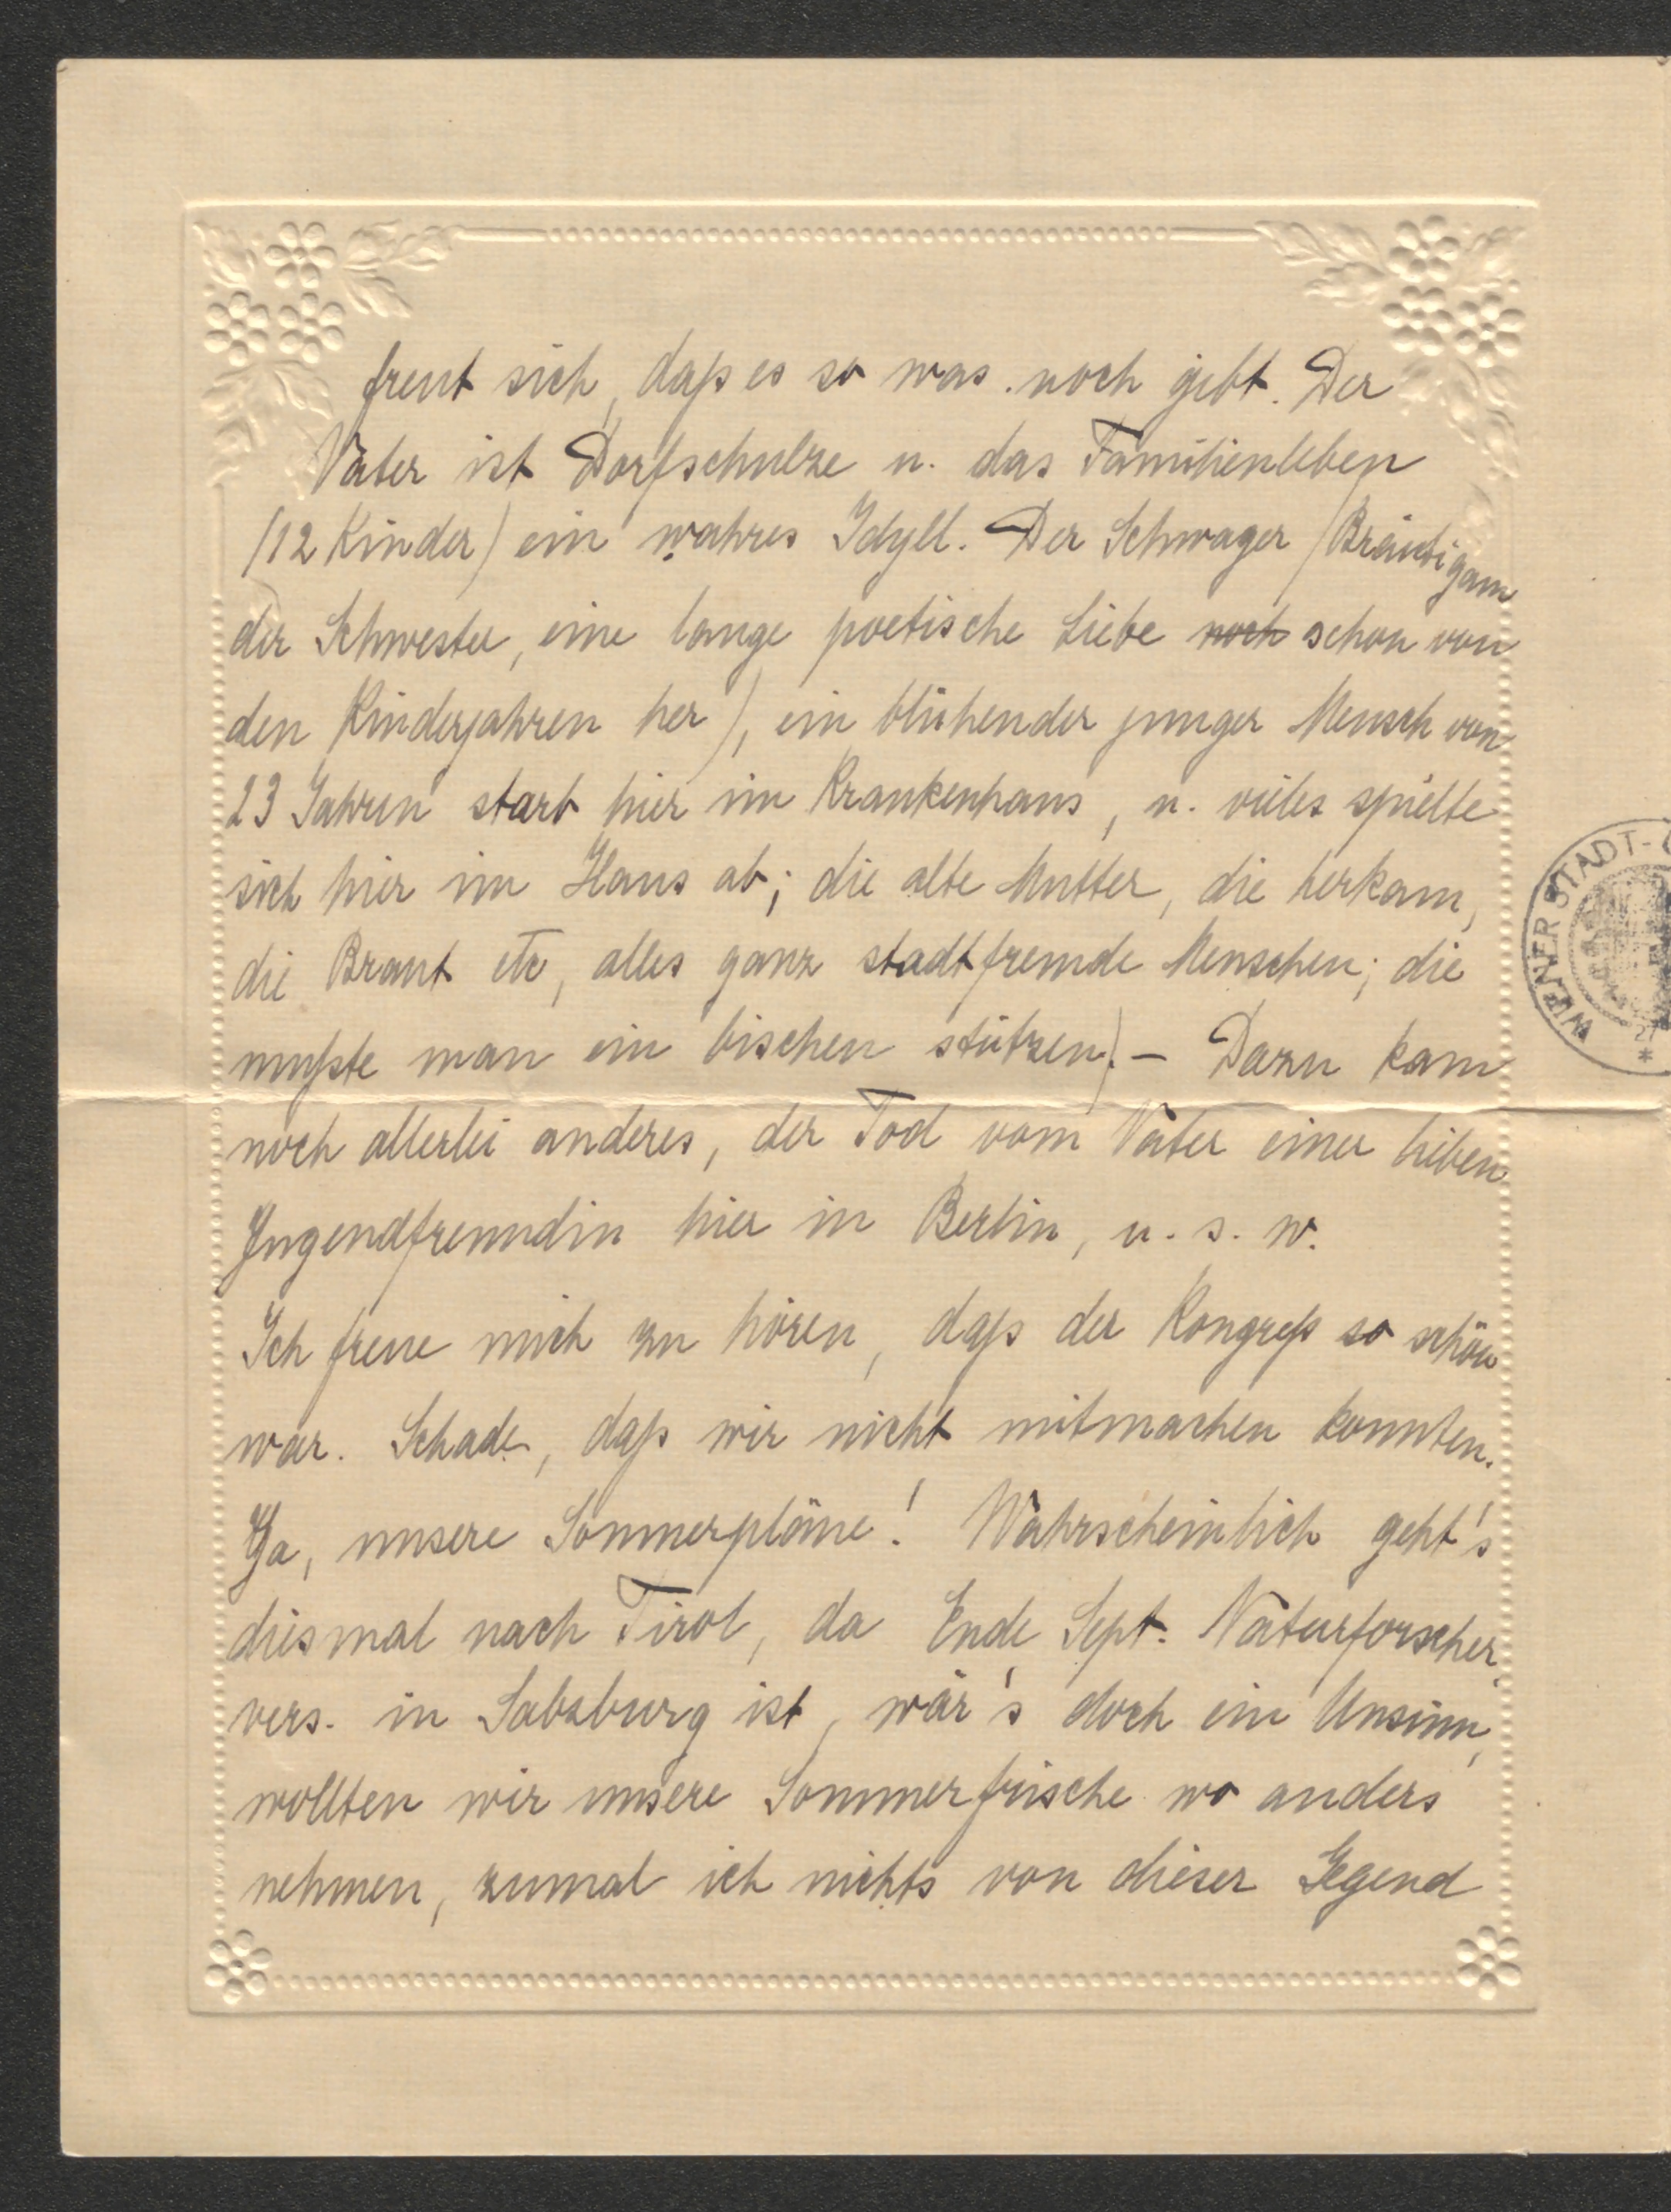 freut sich, daß es so was noch gibt. Der
Vater ist Dorfschulze u. das Familienleben
(12 Kinder) ein wahres Idyll. Der Schwager (Bräutigam
der Schwester, eine lange poetische Liebe noch schon von
den Kinderjahren her), ein blühender junger Mensch von
23 Jahren starb hier im Krankenhaus, u. vieles spielte
sich hier im Haus ab; die alte Mutter, die herkam,
die Braut etc, alles ganz stadtfremde Menschen; die
mußte man ein bischen stützen). – Dazu kam
noch allerlei anderes, der Tod vom Vater einer lieben
Jugendfreundin hier in Berlin, u. s. w.
Ich freue mich zu hören, daß der Kongreß so schön
war. Schade, daß wir nicht mitmachen konnten.
Ja, unsere Sommerpläne! Wahrscheinlich geht's
diesmal nach Tirol, da Ende Sept. Naturforscher
vers. in Salzburg ist, wär's doch ein Unsinn,
wollten wir unsere Sommerfrische wo anders
nehmen, zumal ich nichts von dieser Gegend
WIENER STADT-